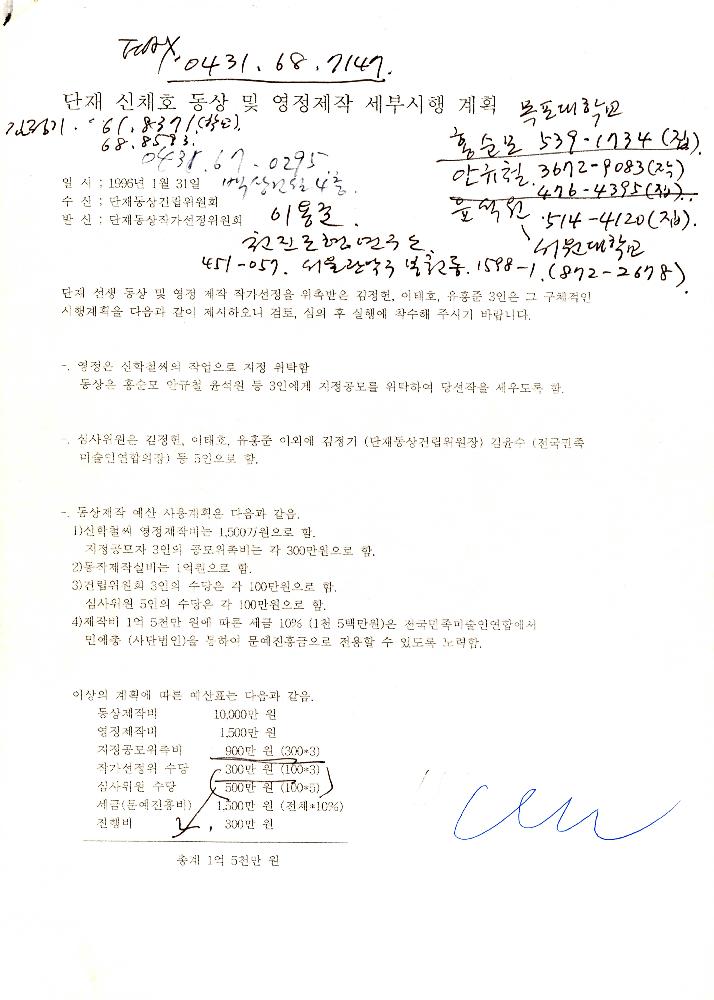 FAX. 0431. 68. 7147.
단재 신채호 동상 및 영정제작 세부시행 계획
목포대학교
김정기. 61. 8371 (학교).
68. 8583.
홍순모 539-1734 (집).
0431. 67-0295.
안규철 3672-9083 (작)
476-4395 (집).
일 시 : 1996년 1월 31일
4층.
수 신 : 단재동상건립위원회
윤석원 514-4120 (집).
발 신 : 단재동상작가선정위원회
서원대학교
451-057. 서울 관악구 1598-1. (872-2678)
단재 선생 동상 및 영정 제작 작가선정을 위촉받은 김정헌, 이태호, 유홍준 3인은 그 구체적인
시행계획을 다음과 같이 제시하오니 검토, 심의 후 실행에 착수해 주시기 바랍니다.
-. 영정은 신학철씨의 작업으로 지정 위탁함
동상은 홍순모 안규철 윤석원 등 3인에게 지정공모를 위탁하여 당선작을 세우도록 함.
-. 심사위원은 김정헌, 이태호, 유홍준 이외에 김정기 (단재동상건립위원장) 김윤수 (전국민족
미술인연합의장) 등 5인으로 함.
-. 동상제작 예산 사용계획은 다음과 같음.
1)신학철씨 영정제작비는 1,500만원으로 함.
지정공모자 3인의 공모위촉비는 각 300만원으로 함.
2)동작제작실비는 1억원으로 함.
3)건립위원회 3인의 수당은 각 100만원으로 함.
심사위원 5인의 수당은 각 100만원으로 함.
4)제작비 1억 5천만 원에 따른 세금 10% (1천 5백만원)은 전국민족미술인연합에서
민예총 (사단법인)을 통하여 문예진흥금으로 전용할 수 있도록 노력함.
이상의 계획에 따른 예산표는 다음과 같음.
동상제작비 10,000만 원
영정제작비 1,500만 원
지정공모위촉비 900만 원 (300*3)
작가선정위 수당 300만 원 (100*3)
심사위원 수당 500만 원 (100*5)
세금(문예진흥비) 1,500만 원 (전체*10%)
진행비 300만 원
총계 1억 5천만 원